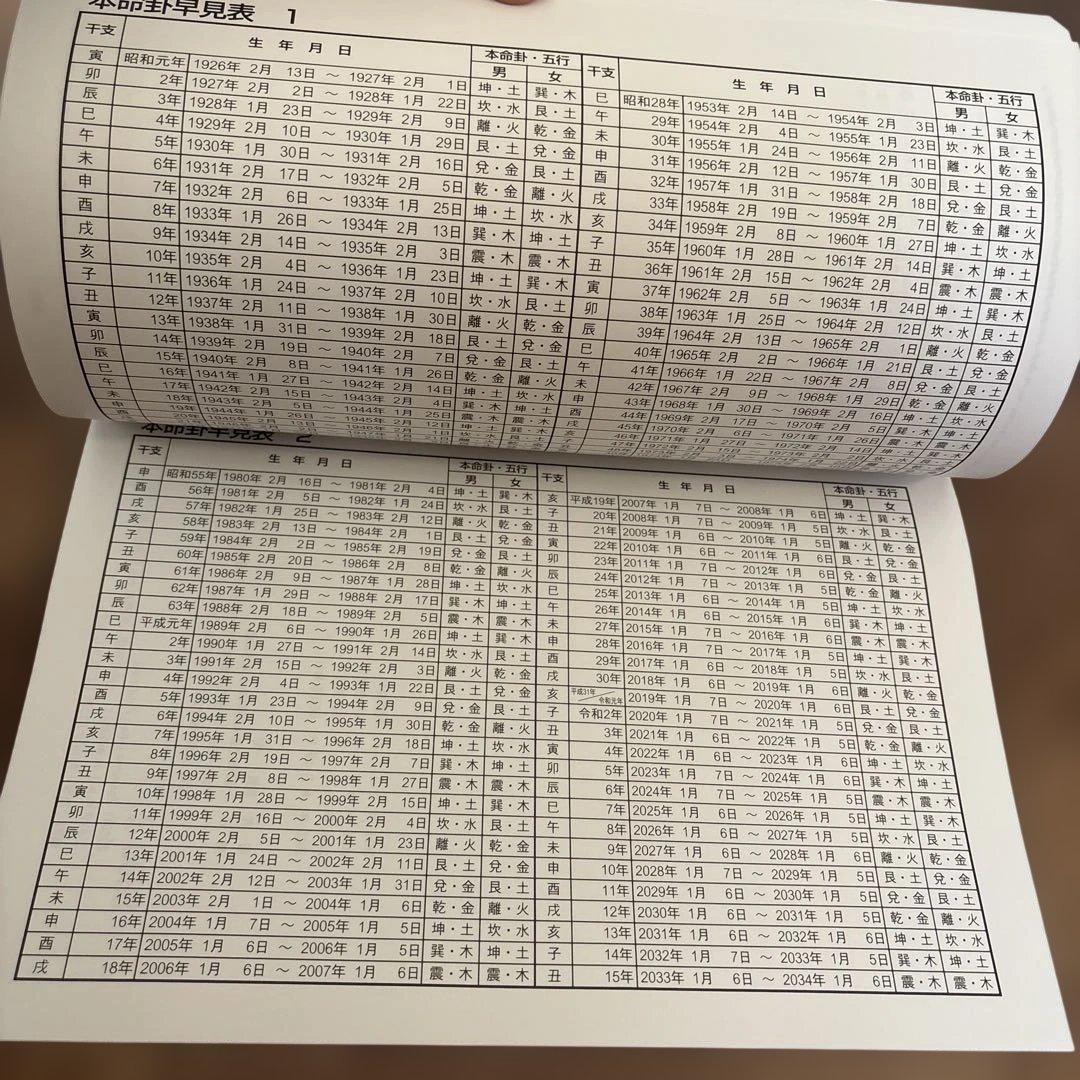 本命卦早見表 1
干支 生年月日 本命卦・五行
男 女
寅 昭和元年 1926年 2月 13日 ～ 1927年 2月 1日 坤・土 巽・木
卯 2年 1927年 2月 2日 ～ 1928年 1月 22日 坎・水 艮・土
辰 3年 1928年 1月 23日 ～ 1929年 2月 9日 離・火 乾・金
巳 4年 1929年 2月 10日 ～ 1930年 1月 29日 艮・土 兌・金
午 5年 1930年 1月 30日 ～ 1931年 2月 16日 兌・金 艮・土
未 6年 1931年 2月 17日 ～ 1932年 2月 5日 乾・金 離・火
申 7年 1932年 2月 6日 ～ 1933年 1月 25日 坤・土 坎・水
酉 8年 1933年 1月 26日 ～ 1934年 2月 13日 巽・木 坤・土
戌 9年 1934年 2月 14日 ～ 1935年 2月 3日 震・木 震・木
亥 10年 1935年 2月 4日 ～ 1936年 1月 23日 坤・土 巽・木
子 11年 1936年 1月 24日 ～ 1937年 2月 10日 坎・水 艮・土
丑 12年 1937年 2月 11日 ～ 1938年 1月 30日 離・火 乾・金
寅 13年 1938年 1月 31日 ～ 1939年 2月 18日 艮・土 兌・金
卯 14年 1939年 2月 19日 ～ 1940年 2月 7日 兌・金 艮・土
辰 15年 1940年 2月 8日 ～ 1941年 1月 26日 乾・金 離・火
巳 16年 1941年 1月 27日 ～ 1942年 2月 14日 坤・土 坎・水
午 17年 1942年 2月 15日 ～ 1943年 2月 4日 巽・木 坤・土
未 18年 1943年 2月 5日 ～ 1944年 1月 25日 震・木 震・木
申 19年 1944年 1月 26日
干支 生年月日 本命卦・五行
男 女
巳 昭和28年 1953年 2月 14日 ～ 1954年 2月 3日 坤・土 巽・木
午 29年 1954年 2月 4日 ～ 1955年 1月 23日 坎・水 艮・土
未 30年 1955年 1月 24日 ～ 1956年 2月 11日 離・火 乾・金
申 31年 1956年 2月 12日 ～ 1957年 1月 30日 艮・土 兌・金
酉 32年 1957年 1月 31日 ～ 1958年 2月 18日 兌・金 艮・土
戌 33年 1958年 2月 19日 ～ 1959年 2月 7日 乾・金 離・火
亥 34年 1959年 2月 8日 ～ 1960年 1月 27日 坤・土 坎・水
子 35年 1960年 1月 28日 ～ 1961年 2月 14日 巽・木 坤・土
丑 36年 1961年 2月 15日 ～ 1962年 2月 4日 震・木 震・木
寅 37年 1962年 2月 5日 ～ 1963年 1月 24日 坤・土 巽・木
卯 38年 1963年 1月 25日 ～ 1964年 2月 12日 坎・水 艮・土
辰 39年 1964年 2月 13日 ～ 1965年 2月 1日 離・火 乾・金
巳 40年 1965年 2月 2日 ～ 1966年 1月 21日 艮・土 兌・金
午 41年 1966年 1月 22日 ～ 1967年 2月 8日 兌・金 艮・土
未 42年 1967年 2月 9日 ～ 1968年 1月 29日 乾・金 離・火
申 43年 1968年 1月 30日 ～ 1969年 2月 16日 坤・土 坎・水
酉 44年 1969年 2月 17日 ～ 1970年 2月 5日 巽・木 坤・土
戌 45年 1970年 2月 6日 ～ 1971年 1月 26日 震・木 震・木
46年 1971年 1月 27日 ～ 1972年 2月 14日
本命卦早見表 2
干支 生年月日 本命卦・五行
男 女
申 昭和55年 1980年 2月 16日 ～ 1981年 2月 4日 坤・土 巽・木
酉 56年 1981年 2月 5日 ～ 1982年 1月 24日 坎・水 艮・土
戌 57年 1982年 1月 25日 ～ 1983年 2月 12日 離・火 乾・金
亥 58年 1983年 2月 13日 ～ 1984年 2月 1日 艮・土 兌・金
子 59年 1984年 2月 2日 ～ 1985年 2月 19日 兌・金 艮・土
丑 60年 1985年 2月 20日 ～ 1986年 2月 8日 乾・金 離・火
寅 61年 1986年 2月 9日 ～ 1987年 1月 28日 坤・土 坎・水
卯 62年 1987年 1月 29日 ～ 1988年 2月 17日 巽・木 坤・土
辰 63年 1988年 2月 18日 ～ 1989年 2月 5日 震・木 震・木
巳 平成元年 1989年 2月 6日 ～ 1990年 1月 26日 坤・土 巽・木
午 2年 1990年 1月 27日 ～ 1991年 2月 14日 坎・水 艮・土
未 3年 1991年 2月 15日 ～ 1992年 2月 3日 離・火 乾・金
申 4年 1992年 2月 4日 ～ 1993年 1月 22日 艮・土 兌・金
酉 5年 1993年 1月 23日 ～ 1994年 2月 9日 兌・金 艮・土
戌 6年 1994年 2月 10日 ～ 1995年 1月 30日 乾・金 離・火
亥 7年 1995年 1月 31日 ～ 1996年 2月 18日 坤・土 坎・水
子 8年 1996年 2月 19日 ～ 1997年 2月 7日 巽・木 坤・土
丑 9年 1997年 2月 8日 ～ 1998年 1月 27日 震・木 震・木
寅 10年 1998年 1月 28日 ～ 1999年 2月 15日 坤・土 巽・木
卯 11年 1999年 2月 16日 ～ 2000年 2月 4日 坎・水 艮・土
辰 12年 2000年 2月 5日 ～ 2001年 1月 23日 離・火 乾・金
巳 13年 2001年 1月 24日 ～ 2002年 2月 11日 艮・土 兌・金
午 14年 2002年 2月 12日 ～ 2003年 1月 31日 兌・金 艮・土
未 15年 2003年 2月 1日 ～ 2004年 1月 6日 乾・金 離・火
申 16年 2004年 1月 7日 ～ 2005年 1月 5日 坤・土 坎・水
酉 17年 2005年 1月 6日 ～ 2006年 1月 5日 巽・木 坤・土
戌 18年 2006年 1月 6日 ～ 2007年 1月 6日 震・木 震・木
干支 生年月日 本命卦・五行
男 女
亥 平成19年 2007年 1月 7日 ～ 2008年 1月 6日 坤・土 巽・木
子 20年 2008年 1月 7日 ～ 2009年 1月 5日 坎・水 艮・土
丑 21年 2009年 1月 6日 ～ 2010年 1月 5日 離・火 乾・金
寅 22年 2010年 1月 6日 ～ 2011年 1月 6日 艮・土 兌・金
卯 23年 2011年 1月 7日 ～ 2012年 1月 6日 兌・金 艮・土
辰 24年 2012年 1月 7日 ～ 2013年 1月 5日 乾・金 離・火
巳 25年 2013年 1月 6日 ～ 2014年 1月 5日 坤・土 坎・水
午 26年 2014年 1月 6日 ～ 2015年 1月 6日 巽・木 坤・土
未 27年 2015年 1月 7日 ～ 2016年 1月 6日 震・木 震・木
申 28年 2016年 1月 7日 ～ 2017年 1月 5日 坤・土 巽・木
酉 29年 2017年 1月 6日 ～ 2018年 1月 5日 坎・水 艮・土
戌 30年 2018年 1月 6日 ～ 2019年 1月 6日 離・火 乾・金
亥 平成31年/令和元年 2019年 1月 7日 ～ 2020年 1月 6日 艮・土 兌・金
子 令和2年 2020年 1月 7日 ～ 2021年 1月 5日 兌・金 艮・土
丑 3年 2021年 1月 6日 ～ 2022年 1月 5日 乾・金 離・火
寅 4年 2022年 1月 6日 ～ 2023年 1月 6日 坤・土 坎・水
卯 5年 2023年 1月 7日 ～ 2024年 1月 6日 巽・木 坤・土
辰 6年 2024年 1月 7日 ～ 2025年 1月 5日 震・木 震・木
巳 7年 2025年 1月 6日 ～ 2026年 1月 5日 坤・土 巽・木
午 8年 2026年 1月 6日 ～ 2027年 1月 5日 坎・水 艮・土
未 9年 2027年 1月 6日 ～ 2028年 1月 6日 離・火 乾・金
申 10年 2028年 1月 7日 ～ 2029年 1月 5日 艮・土 兌・金
酉 11年 2029年 1月 6日 ～ 2030年 1月 5日 兌・金 艮・土
戌 12年 2030年 1月 6日 ～ 2031年 1月 5日 乾・金 離・火
亥 13年 2031年 1月 6日 ～ 2032年 1月 6日 坤・土 坎・水
子 14年 2032年 1月 7日 ～ 2033年 1月 5日 巽・木 坤・土
丑 15年 2033年 1月 6日 ～ 2034年 1月 6日 震・木 震・木